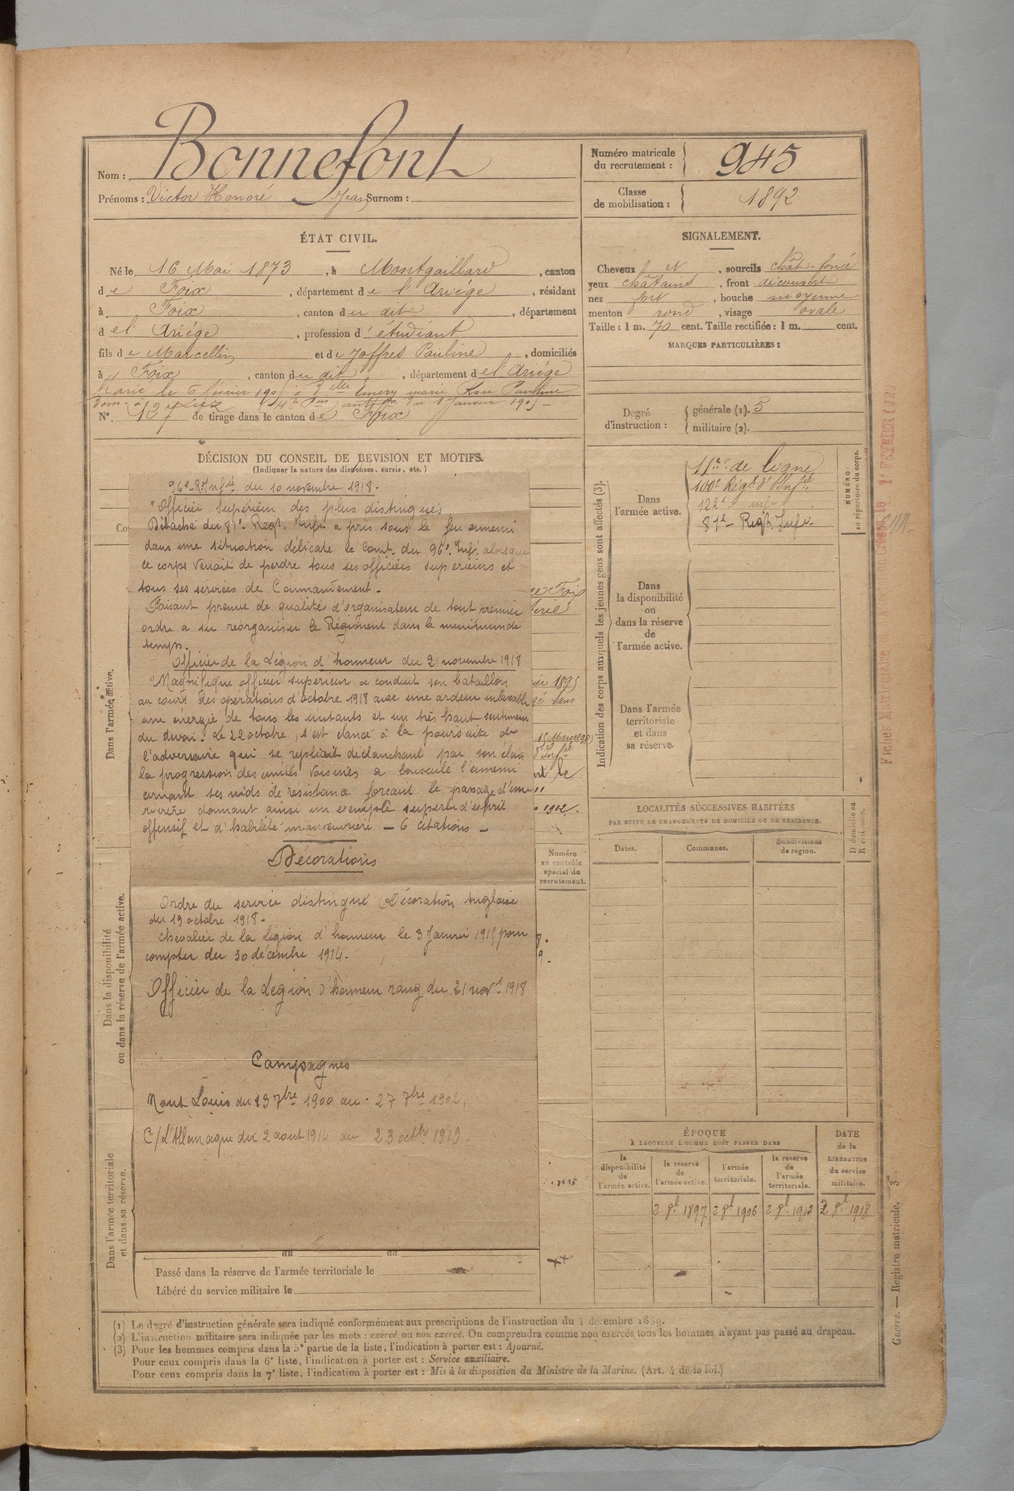 Nom : Bonnefont
Prénoms : Victor Honoré Jean Surnom :
Numéro matricule du recrutement : 945
Classe de mobilisation : 1892
ÉTAT CIVIL.
Né le 16 Mai 1873, à Montgaillard, canton
de Foix, département de l'Ariége, résidant
à Foix, canton du dit, département
de l'Ariége, profession d'étudiant
fils de Marcellin et de Joffres Pauline, domiciliés
à Foix, canton du dit, département de l'Ariége
Marié le 6 février 1905 à Delle
N° 137 de tirage dans le canton de Foix
SIGNALEMENT.
Cheveux et, sourcils chât. foncé
yeux châtains, front découvert
nez fort, bouche moyenne
menton rond, visage ovale
Taille : 1 m. 70 cent. Taille rectifiée : 1 m. cent.
MARQUES PARTICULIÈRES :
Degré d'instruction : générale (1). 5
militaire (2).
DÉCISION DU CONSEIL DE REVISION ET MOTIFS.
(Indiquer la nature des dispenses, sursis, etc.)
96e R. Infie du 10 novembre 1918.
"Officier Supérieur des plus distingués
Détaché du 81e Regt. Infie a pris sous le feu ennemi
dans une situation délicate le Comt. du 96e Infie alorsque
ce corps venait de perdre tous ses officiers supérieurs et
tous ses services de Commandement.
Faisant preuve de qualités d'organisateur de tout premier
ordre a su reorganiser le Régiment dans le minimum de
temps.
Officier de la Légion d'honneur du 21 novembre 1918
"Magnifique officier supérieur a conduit son bataillon
au cours des operations d'octobre 1918 avec une ardeur inlassable
une énergie de tous les instants et un très haut sentiment
du devoir. Le 22 octobre, s'est élancé à la poursuite de
l'adversaire qui se repliait déclanchant par son élan
la progression des unités voisines a bousculé l'ennemi
cernant ses nids de resistance forcant le passage d'une
rivière donnant ainsi un exemple superbe d'esprit
offensif et d'habileté manoeuvrière — 6 citations —
Décorations
Ordre du service distingué (Décoration Anglaise
du 19 octobre 1918.
Chevalier de la Légion d'honneur le 3 Janvier 1915 pour
compter du 30 décembre 1914.
Officier de la Légion d'honneur rang du 21 novre 1918
Campagnes
Mont Louis du 13 7bre 1900 au 27 7bre 1902,
C/ l'Allemagne du 2 aout 1914 au 23 octbre 1919
Dans l'armée active.
Dans la disponibilité
ou dans la réserve de l'armée active.
Dans l'armée territoriale
et dans sa réserve.
Numéro
au contrôle
spécial du
recrutement.
Passé dans la réserve de l'armée territoriale le
Libéré du service militaire le
Indication des corps auxquels les jeunes gens sont affectés (3).
NUMÉRO
au répertoire du corps.
Dans l'armée active.
11e de ligne
100e Régt d'Infie
122e infie
81e Regt Infie.
Dans la disponibilité ou dans la réserve de l'armée active.
Dans l'armée territoriale et dans sa réserve.
LOCALITÉS SUCCESSIVES HABITÉES
PAR SUITE DE CHANGEMENTS DE DOMICILE OU DE RÉSIDENCE.
Dates.
Communes.
Subdivisions de région.
ÉPOQUE
À LAQUELLE L'HOMME DOIT PASSER DANS
la disponibilité de l'armée active.
la réserve de l'armée active.
l'armée territoriale.
la réserve de l'armée territoriale.
DATE de la LIBÉRATION du service militaire.
2 9bre 1897
2 9bre 1906
2 9bre 1912
2 9bre 1918
Guerre. — Registre matricule. 3
(1) Le degré d'instruction générale sera indiqué conformément aux prescriptions de l'instruction du 4 décembre 1889.
(2) L'instruction militaire sera indiquée par les mots : exercé ou non exercé. On comprendra comme non exercés tous les hommes n'ayant pas passé au drapeau.
(3) Pour les hommes compris dans la 5e partie de la liste, l'indication à porter est : Ajourné.
Pour ceux compris dans la 6e liste, l'indication à porter est : Service auxiliaire.
Pour ceux compris dans la 7e liste, l'indication à porter est : Mis à la disposition du Ministre de la Marine. (Art. 4 de la loi.)